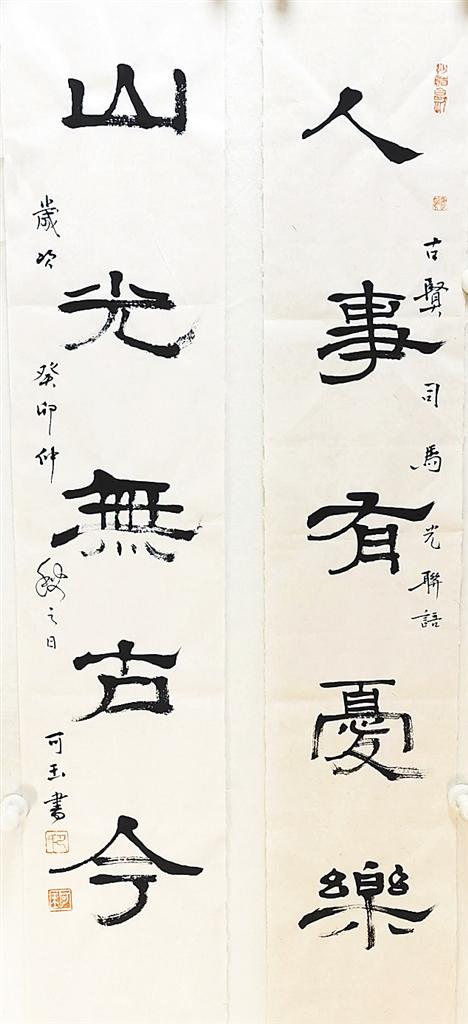 人事有憂樂
古賢司馬光聯語
山光無古今
歲次癸卯仲秋之日
可玉書